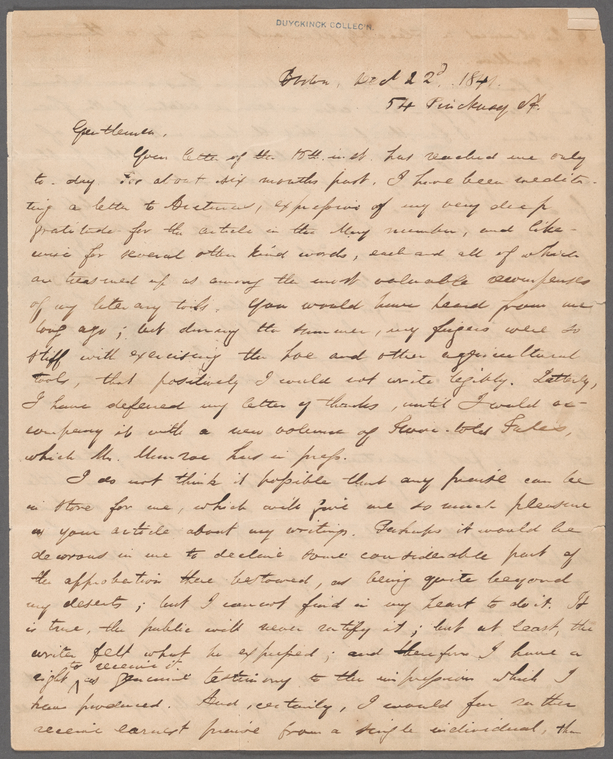 DUYCKINCK COLLEC'N.
Boston, 22d. 1841.
54 Pinckney St.
Gentlemen,
Your letter of the 10th inst. has reached me only
to-day. For about six months past, I have been medita-
ting a letter to Arcturus, expressive of my very deep
gratitude for the article in the May number, and like-
wise for several other kind words, each and all of which
are treasured up as among the most valuable recompenses
of my literary toils. You would have heard from me
long ago; but during the summer, my fingers were so
stiff with exercising the hoe and other agricultural
tools, that positively I could not write legibly. Latterly,
I have deferred my letter of thanks, until I could ac-
company it with a new volume of Twice-told Tales,
which Mr. Munroe has in press.
I do not think it possible that any praise can be
in store for me, which will give me so much pleasure
as your article about my writings. Perhaps it would be
decorous in me to decline some considerable part of
the approbation there bestowed, as being quite beyond
my deserts; but I cannot find in my heart to do it. It
is true, the public will never ratify it; but at least, the
writer felt what he expressed; and therefore I have a
right to receive it as genuine testimony to the impression which I
have produced. And, certainly, I would far rather
receive earnest praise from a single individual, than